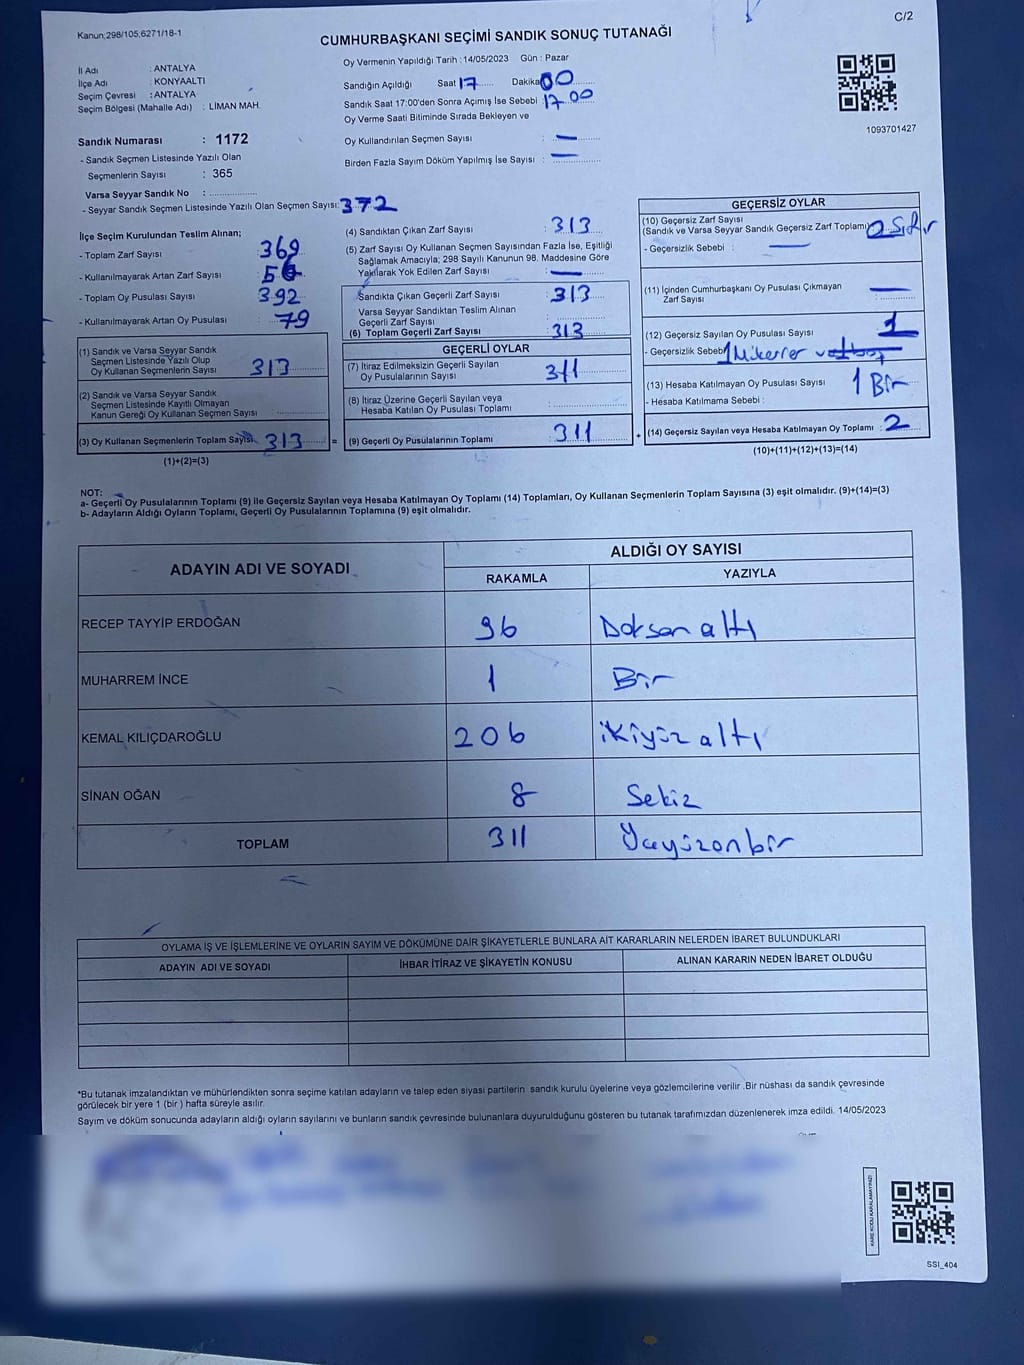 Kanun;298/105;6271/18-1
C/2
CUMHURBAŞKANI SEÇİMİ SANDIK SONUÇ TUTANAĞI
İl Adı : ANTALYA
İlçe Adı : KONYAALTI
Seçim Çevresi : ANTALYA
Seçim Bölgesi (Mahalle Adı) : LİMAN MAH.
Sandık Numarası : 1172
- Sandık Seçmen Listesinde Yazılı Olan
Seçmenlerin Sayısı : 365
Varsa Seyyar Sandık No :
- Seyyar Sandık Seçmen Listesinde Yazılı Olan Seçmen Sayısı: 372
Oy Vermenin Yapıldığı Tarih : 14/05/2023 Gün : Pazar
Sandığın Açıldığı Saat 17 Dakika 00
Sandık Saat 17:00'den Sonra Açımış İse Sebebi : 17 00
Oy Verme Saati Bitiminde Sırada Bekleyen ve
Oy Kullandırılan Seçmen Sayısı : —
Birden Fazla Sayım Döküm Yapılmış İse Sayısı : —
1093701427
İlçe Seçim Kurulundan Teslim Alınan;
- Toplam Zarf Sayısı : 369
- Kullanılmayarak Artan Zarf Sayısı : 56
- Toplam Oy Pusulası Sayısı : 392
- Kullanılmayarak Artan Oy Pusulası : 79
(1) Sandık ve Varsa Seyyar Sandık
Seçmen Listesinde Yazılı Olup
Oy Kullanan Seçmenlerin Sayısı : 313
(2) Sandık ve Varsa Seyyar Sandık
Seçmen Listesinde Kayıtlı Olmayan
Kanun Gereği Oy Kullanan Seçmen Sayısı :
(3) Oy Kullanan Seçmenlerin Toplam Sayısı 313
(1)+(2)=(3)
(4) Sandıktan Çıkan Zarf Sayısı : 313
(5) Zarf Sayısı Oy Kullanan Seçmen Sayısından Fazla İse, Eşitliği
Sağlamak Amacıyla; 298 Sayılı Kanunun 98. Maddesine Göre
Yakılarak Yok Edilen Zarf Sayısı : —
Sandıkta Çıkan Geçerli Zarf Sayısı : 313
Varsa Seyyar Sandıktan Teslim Alınan
Geçerli Zarf Sayısı :
(6) Toplam Geçerli Zarf Sayısı : 313
GEÇERLİ OYLAR
(7) İtiraz Edilmeksizin Geçerli Sayılan
Oy Pusulalarının Sayısı : 311
(8) İtiraz Üzerine Geçerli Sayılan veya
Hesaba Katılan Oy Pusulası Toplamı :
= (9) Geçerli Oy Pusulalarının Toplamı : 311
GEÇERSİZ OYLAR
(10) Geçersiz Zarf Sayısı
(Sandık ve Varsa Seyyar Sandık Geçersiz Zarf Toplamı) 0 Sıfır
- Geçersizlik Sebebi : —
(11) İçinden Cumhurbaşkanı Oy Pusulası Çıkmayan
Zarf Sayısı : —
(12) Geçersiz Sayılan Oy Pusulası Sayısı : 1
- Geçersizlik Sebebi 1 Mükerrer
(13) Hesaba Katılmayan Oy Pusulası Sayısı : 1 Bir
- Hesaba Katılmama Sebebi :
+ (14) Geçersiz Sayılan veya Hesaba Katılmayan Oy Toplamı : 2
(10)+(11)+(12)+(13)=(14)
NOT:
a- Geçerli Oy Pusulalarının Toplamı (9) ile Geçersiz Sayılan veya Hesaba Katılmayan Oy Toplamı (14) Toplamları, Oy Kullanan Seçmenlerin Toplam Sayısına (3) eşit olmalıdır. (9)+(14)=(3)
b- Adayların Aldığı Oyların Toplamı, Geçerli Oy Pusulalarının Toplamına (9) eşit olmalıdır.
ADAYIN ADI VE SOYADI
ALDIĞI OY SAYISI
RAKAMLA YAZIYLA
RECEP TAYYİP ERDOĞAN 96 Doksan altı
MUHARREM İNCE 1 Bir
KEMAL KILIÇDAROĞLU 206 ikiyüz altı
SİNAN OĞAN 8 Sekiz
TOPLAM 311 Üçyüzonbir
OYLAMA İŞ VE İŞLEMLERİNE VE OYLARIN SAYIM VE DÖKÜMÜNE DAİR ŞİKAYETLERLE BUNLARA AİT KARARLARIN NELERDEN İBARET BULUNDUKLARI
ADAYIN ADI VE SOYADI İHBAR İTİRAZ VE ŞİKAYETİN KONUSU ALINAN KARARIN NEDEN İBARET OLDUĞU
*Bu tutanak imzalandıktan ve mühürlendikten sonra seçime katılan adayların ve talep eden siyasi partilerin sandık kurulu üyelerine veya gözlemcilerine verilir .Bir nüshası da sandık çevresinde
görülecek bir yere 1 (bir ) hafta süreyle asılır.
Sayım ve döküm sonucunda adayların aldığı oyların sayılarını ve bunların sandık çevresinde bulunanlara duyurulduğunu gösteren bu tutanak tarafımızdan düzenlenerek imza edildi. 14/05/2023
KARE KODU KARALAMAYINIZ!
SSI_404